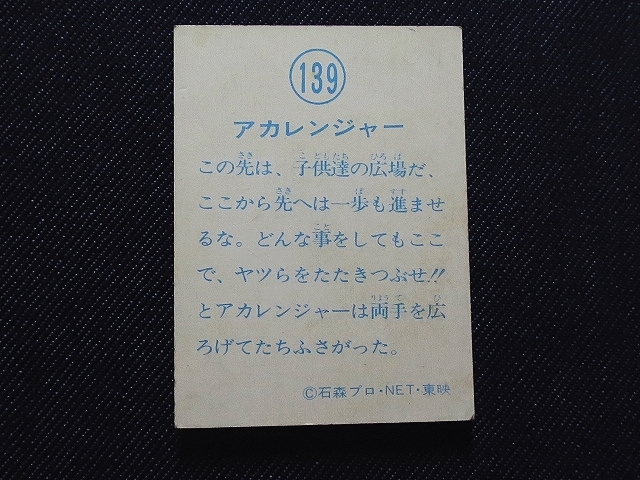 139
アカレンジャー
この先は、子供達の広場だ、
ここから先へは一歩も進ませ
るな。どんな事をしてもここ
で、ヤツらをたたきつぶせ!!
とアカレンジャーは両手を広
ろげてたちふさがった。
©石森プロ・NET・東映